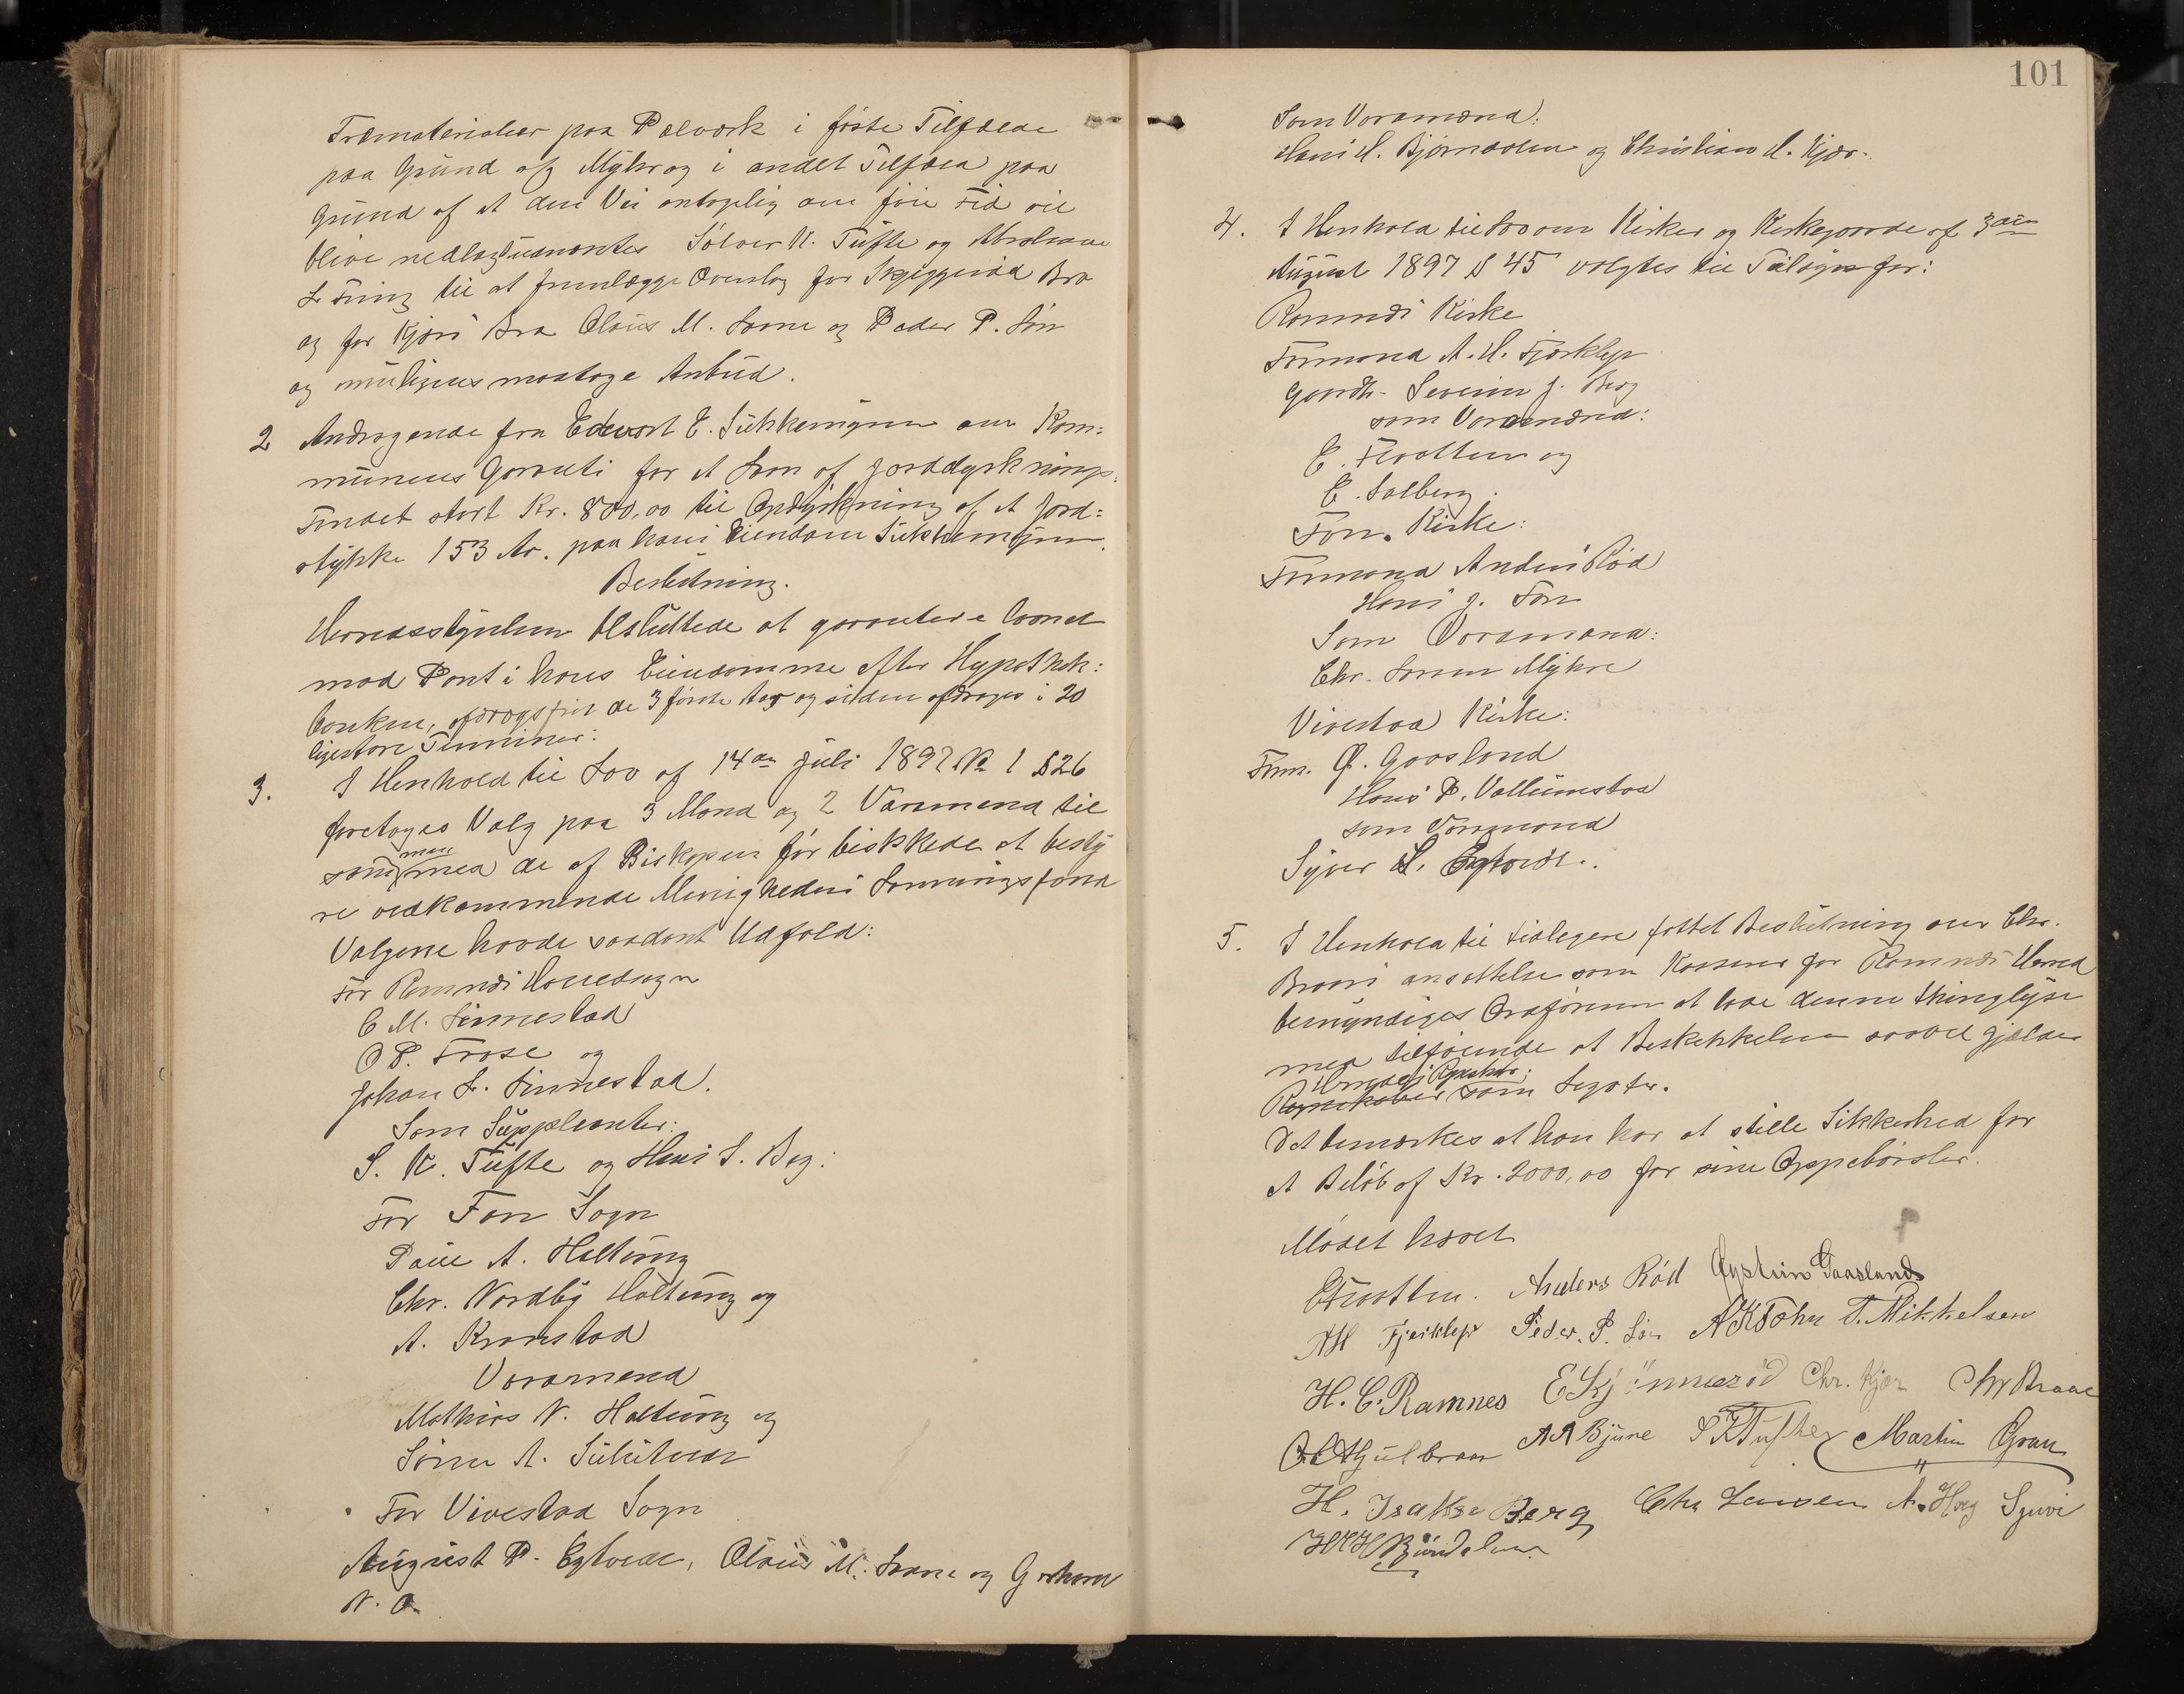 Træmaterialier paa Pæleværk i første Tilfælde
paa Grund af Myhr og i andet Tilfæld paa
Grund af at den Vei antagelig om føie Tid vil
blive nedlagt udnævntes Sølver K. Tufte og Abraham
L. Tring til at fremlægge Overslag for Skjeggerød Bro
og for Kjærs Bro Olaus M. Linne og Peder P. Lin
og muligens modtage Anbud.
2 Andragende fra Edvart E. Sukkemyren om Kom=
munens Garanti for et Laan af Jorddyrknings=
Fondet stort Kr. 800,00 til Opdyrkning af et Jord=
stykke 153 Ar. paa hans Eiendom Sukkemyren.
Beslutning.
Herredsstyrelsen besluttede at garantere Laanet
mod Pant i hans Eiendomme efter Hypothek=
banken, afdragsfrit de 3 første Aar og siden afdrages i 20
ligestore Terminer.
3. I Henhold til Lov af 14de Juli 1897 No 1 § 26
foretages Valg paa 3 Mænd og 2 Varamænd til
sammen med de af Biskopen før beskikkede at besty
re vedkommende Menigheders Lønningsfond
Valgene havde saadant Udfald:
For Ramnæs Hovedsogn
C M. Linnestad
O P. Frose og
Johan L. Linnestad.
Som Suppleanter:
S. K. Tufte og Hans I. Berg.
For Fon Sogn
Paul A. Holtung
Chr. Nordby Holtung og
A. Kronstad
Varamænd
Mathias N. Holtung og
Søren A. Sulutvedt
For Vivestad Sogn
August P. Eftedt, Olaus M. Linne og Gorham
N. O.
101
Som Varamænd:
Hans H. Bjørndalen og Christian H. Kjær.
4. I Henhold til Lov om Kirker og Kirkegaarde af 3die
August 1897 § 45 valgtes til Tilsyn for:
Ramnæs Kirke
Formand A. H. Fjærklep
Gaardb. Severin J. Berg
som Varamænd:
E. Flaatten og
E. Solberg.
Fon Kirke:
Formand Anders Rød
Hans J. Fon
Som Varamænd:
Chr. Larsen Myhre
Vivestad Kirke:
Form. Ø. Gaasland
Hans P. Vallumstad
som Varamænd
Syver S. Eftedt.
5. I Henhold til tidligere fattet Beslutning om Chr.
Braas ansættelse som Kasserer for Ramnæs Herred
bemyndiges Ordføreren at lade denne thinglyse
med tilføiende at Beskikkelsen saavel gjælder
Herreds Regnskaber
Regnskaber som Legater.
Det bemærkes at han har at stille Sikkerhed for
et Beløb af Kr. 2000,00 for sine Oppebørsler.
Mødet hævet
EFlaatten. Anders Röd Øystein Gaasland
AH Fjærklep Peder. P. Lin A K Fohn T. Mikkelsen
H. C. Ramnes E Skjönnerød Chr. Kjær Chr Braae
A A Bjune S K Tufte Martin Gran
H. Isaksen Berg Chr Larsen A. Hoeg
H H Bjørndalen